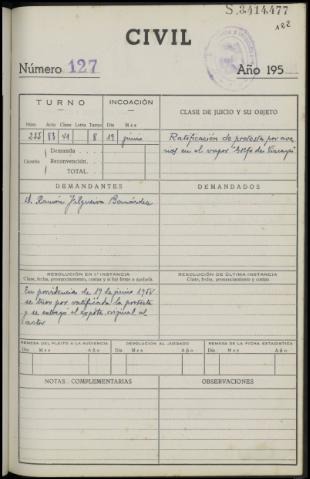 S.3414.477
182
CIVIL
Número 127
Año 195
TURNO
INCOACIÓN
CLASE DE JUICIO Y SU OBJETO
Núm. Acto Clase Letra Turno Día Mes
8 19 junio
Ratificación de protesta por ave
rias en el vapor "Golfo de Vizcaya"
Cuantía
Demanda
Reconvención.
TOTAL.
DEMANDANTES
DEMANDADOS
D. Ramón Filgueira
RESOLUCIÓN EN 1.ª INSTANCIA
Clase, fecha, pronunciamiento, costas y si fué firme o apelada
RESOLUCIÓN DE ÚLTIMA INSTANCIA
Clase, fecha, pronunciamiento y costas
En providencia de 19 de junio
se tuvo por ratificada la protesta
y se entregó el expte. original al
actor
REMESA DEL PLEITO A LA AUDIENCIA
DEVOLUCIÓN AL JUZGADO
REMESA DE LA FICHA ESTADÍSTICA
Día Mes Año Día Mes Año Día Mes Año
NOTAS COMPLEMENTARIAS
OBSERVACIONES